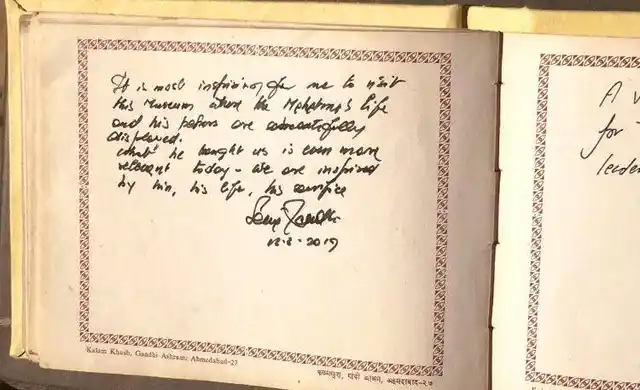 It is most inspiring for me to visit
this Museum where the Mahatma's life
and his papers are so beautifully
displayed.
What he taught us is even more
relevant today - we are inspired
by him, his life, his sacrifice
12.3.2019
Kalam Khush, Gandhi Ashram, Ahmedabad-27
કલમખુશ, ગાંધી આશ્રમ, અમદાવાદ-૨૭
A
for
leader